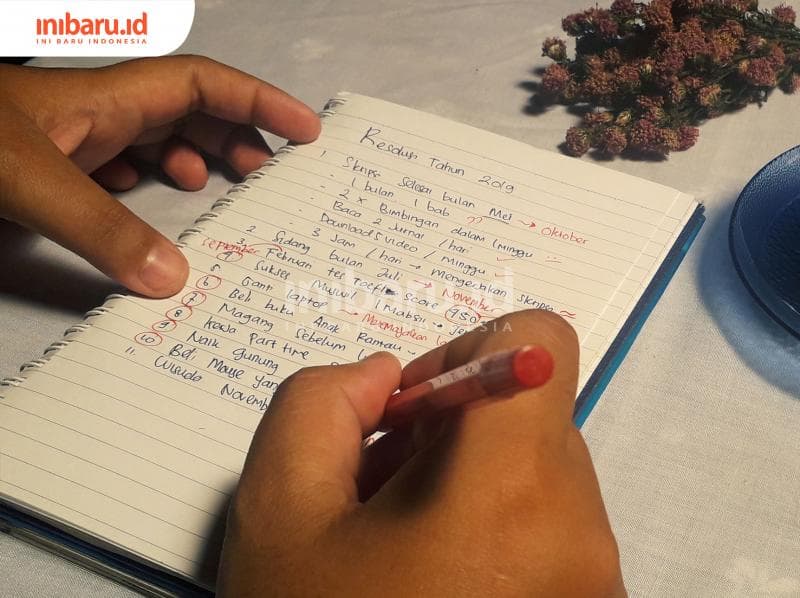 inibaru.id
INI BARU INDONESIA
Resolusi Tahun 2019
1. Skripsi Selesai bulan Mei → Oktober
- 1 bulan 1 bab ??
- 2 x Bimbingan dalam 1 minggu
- Baca 2 Jurnal / hari
- Download 5 video / Minggu
- 3 Jam / hari → mengerjakan Skripsi
2. Sidang bulan Juli → November
September 3. Februari tes toefl Score 450
4. Sukses Muswil
5. Ganti laptop → Memanjakan
6. Beli buku Anak Rantau
7. Magang Sebelum
8. Kerja Part time
9. Naik gunung
10. Beli Mouse yang
11. Wisuda November
inibaru.id
INI BARU INDONESIA